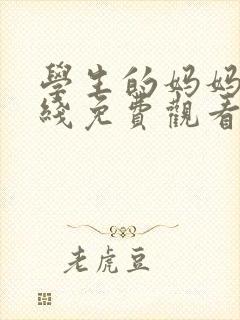 學生的妈妈
綫免費觀看
老虎豆